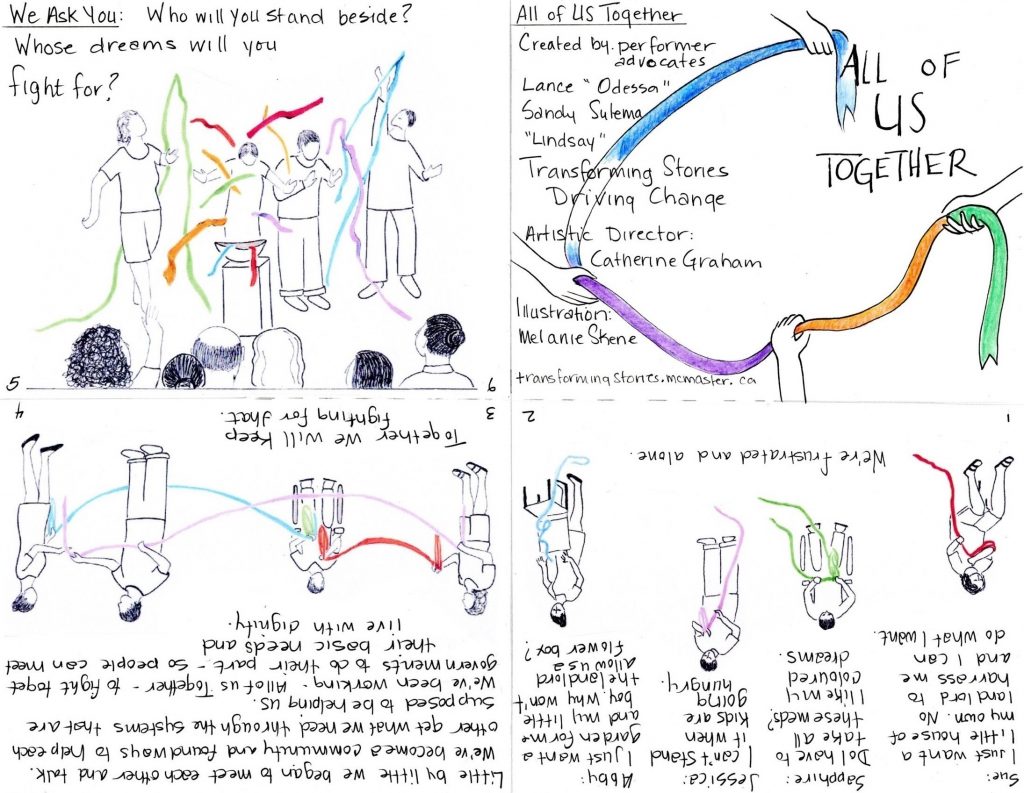 We Ask You: Who will you stand beside?
Whose dreams will you
fight for?
5
6
All of US Together
Created by performer
advocates
Lance "Odessa"
Sandy
"Lindsay"
Transforming Stories
Driving Change
Artistic Director:
Catherine Graham
Illustration:
Melanie Skene
transformingstories.mcmaster.ca
ALL OF
US
TOGETHER
Sue:
I just want a
little house of
my own. No
landlord to
harrass me
and I can
do what I want.
Sapphire:
Do I have to
take all
these meds?
I like my
coloured
dreams.
Jessica:
I can't stand
it when
kids are
going
hungry.
Abby:
I just want a
garden for me
and my little
boy. Why won't
the landlord
allow us a
flower box?
We're frustrated and alone.
1
2
Little by little we began to meet each other and talk.
We've become a community and found ways to help each
other get what we need through the systems that are
supposed to be helping us.
We've been working - All of us Together - to fight to get
governments to do their part - so people can meet
their basic needs and
live with dignity.
Together we will keep
fighting for that.
3
4